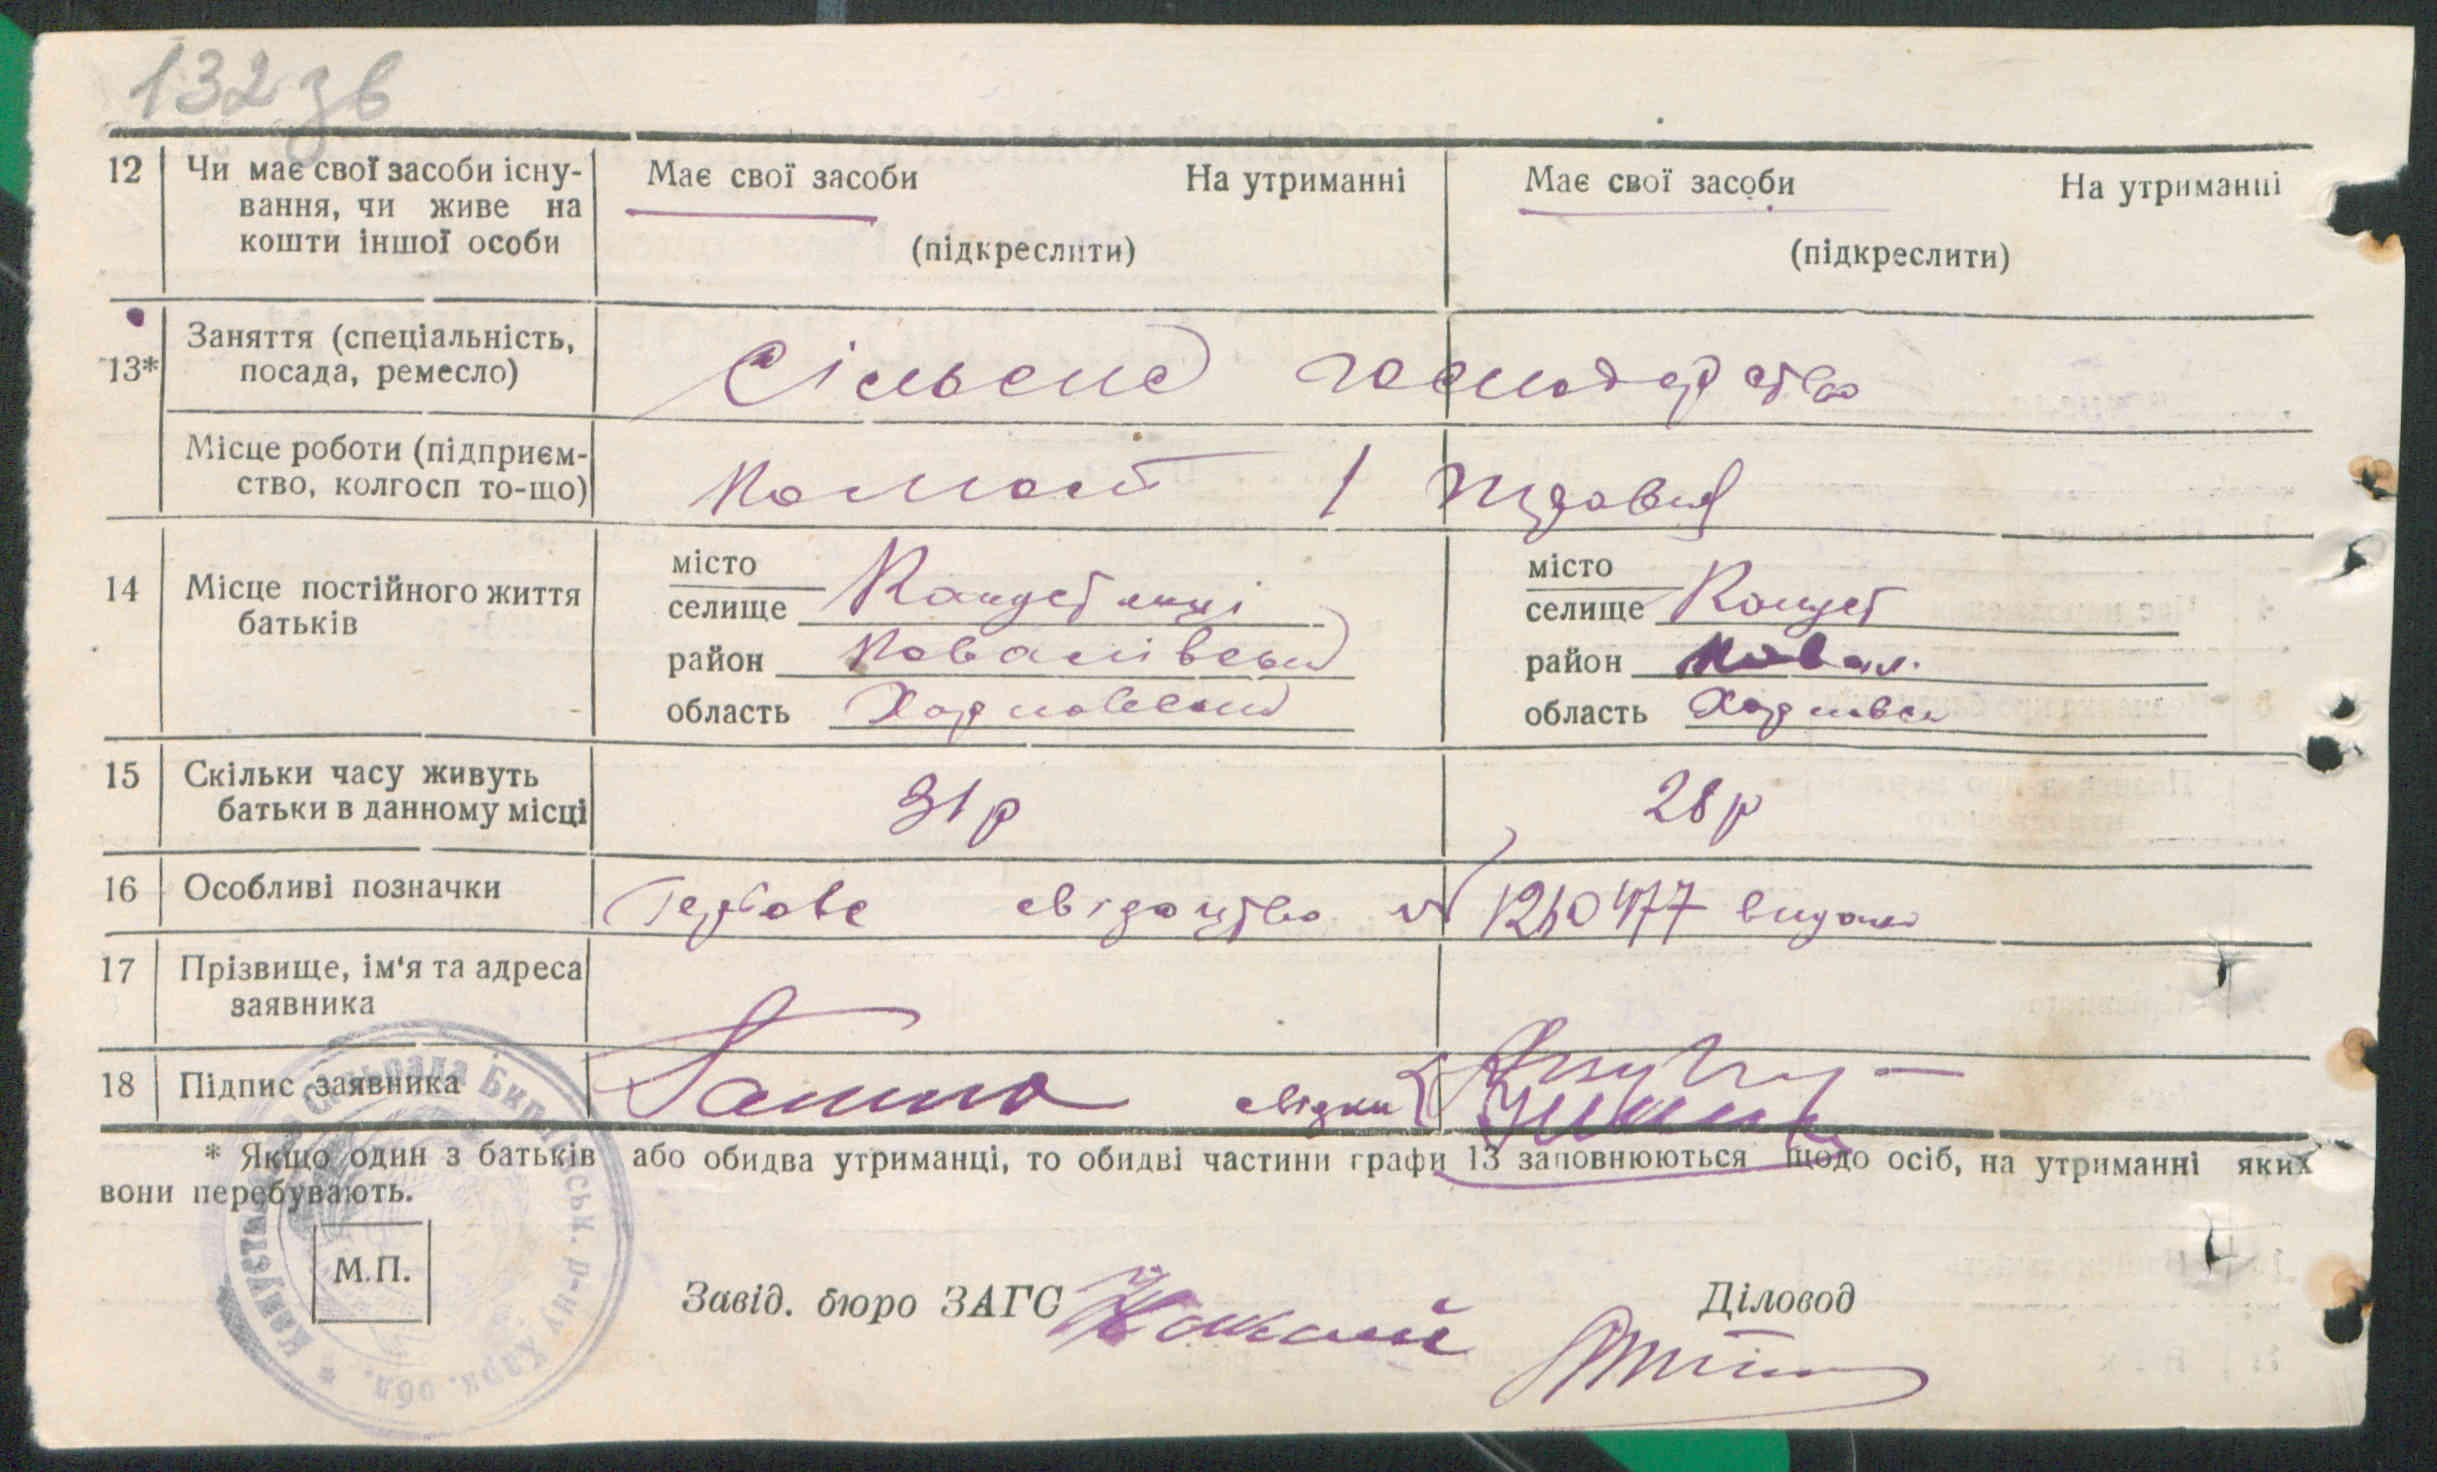 132 зв
12 Чи має свої засоби існу- Має свої засоби На утриманні Має свої засоби На утриманні
вання, чи живе на
кошти іншої особи (підкреслити) (підкреслити)
13* Заняття (спеціальність,
посада, ремесло) Сільське господарство
Місце роботи (підприєм-
ство, колгосп то-що)
14 Місце постійного життя
батьків
місто місто
селище селище Капуст
район Ковалівський район Ковал.
область Харківський область Харківськ
15 Скільки часу живуть
батьки в данному місці 31 р 28 р
16 Особливі позначки Гербове свідоцтво № видано
17 Прізвище, ім'я та адреса
заявника
18 Підпис заявника свідки
* Якщо один з батьків або обидва утриманці, то обидві частини графи 13 заповнюються щодо осіб, на утриманні яких
вони перебувають.
М.П.
Завід. бюро ЗАГС Діловод